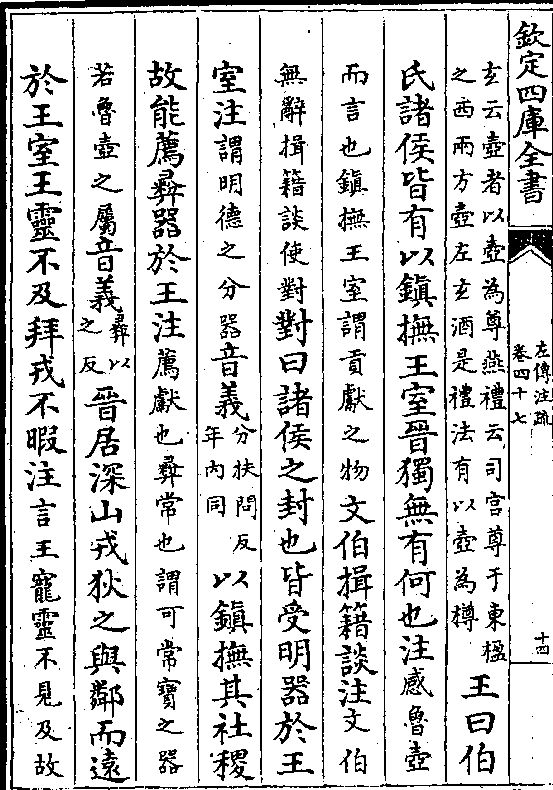 欽定四庫全書
左傳注疏
卷四十七
十四
玄云壺者以壺為尊燕禮云司宫尊于東楹
之西兩方壺左玄酒是禮法有以壺為樽
王曰伯
氏諸侯皆有以鎮撫王室晉獨無有何也注感魯壺
而言也鎮撫王室謂貢獻之物文伯揖籍談注文伯
無辭揖籍談使對對曰諸侯之封也皆受明器於王
室注謂明德之分器音義分扶問反
年内同
以鎮撫其社稷
故能薦彝器於王注薦獻也彝常也謂可常寶之器
若魯壺之屬音義彝以
之反
晉居深山戎狄之與鄰而遠
於王室王靈不及拜戎不暇注言王寵靈不見及故